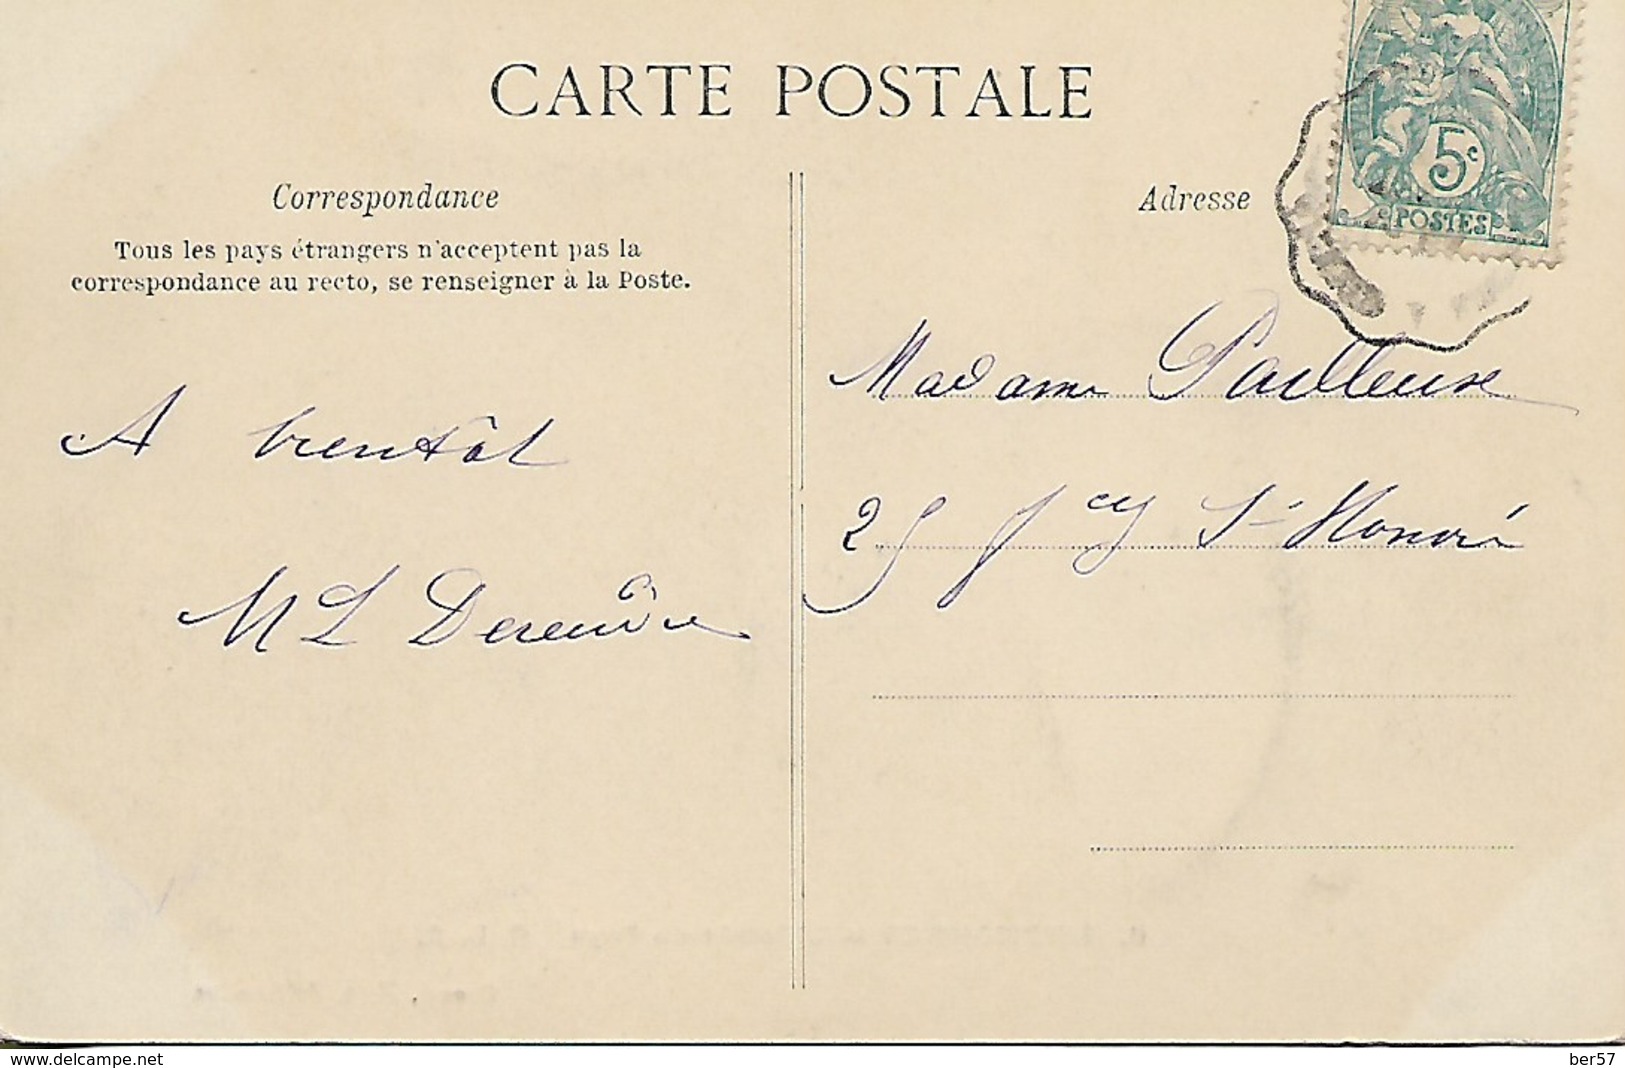 CARTE POSTALE
5c
POSTES
Correspondance
Tous les pays étrangers n'acceptent pas la
correspondance au recto, se renseigner à la Poste.
A bientôt
M L
Adresse
Madame Pailleuse
25 fg St Honoré
www.delcampe.net
ber57